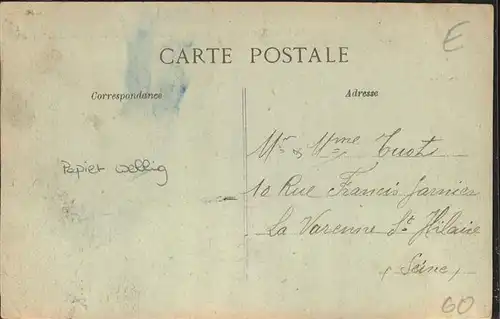 E
CARTE POSTALE
Correspondance
Adresse
Mr & Mme Tuot
Papier wellig
10 Rue Francis Garnier
La Varenne St Hilaire
(Seine)
60